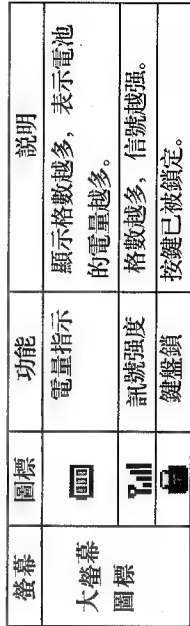 螢幕 圖標 功能 説明
大螢幕
圖標
電量指示
顯示格數越多，表示電池
的電量越多。
訊號强度 格數越多，信號越强。
鍵盤鎖 按鍵已被鎖定。